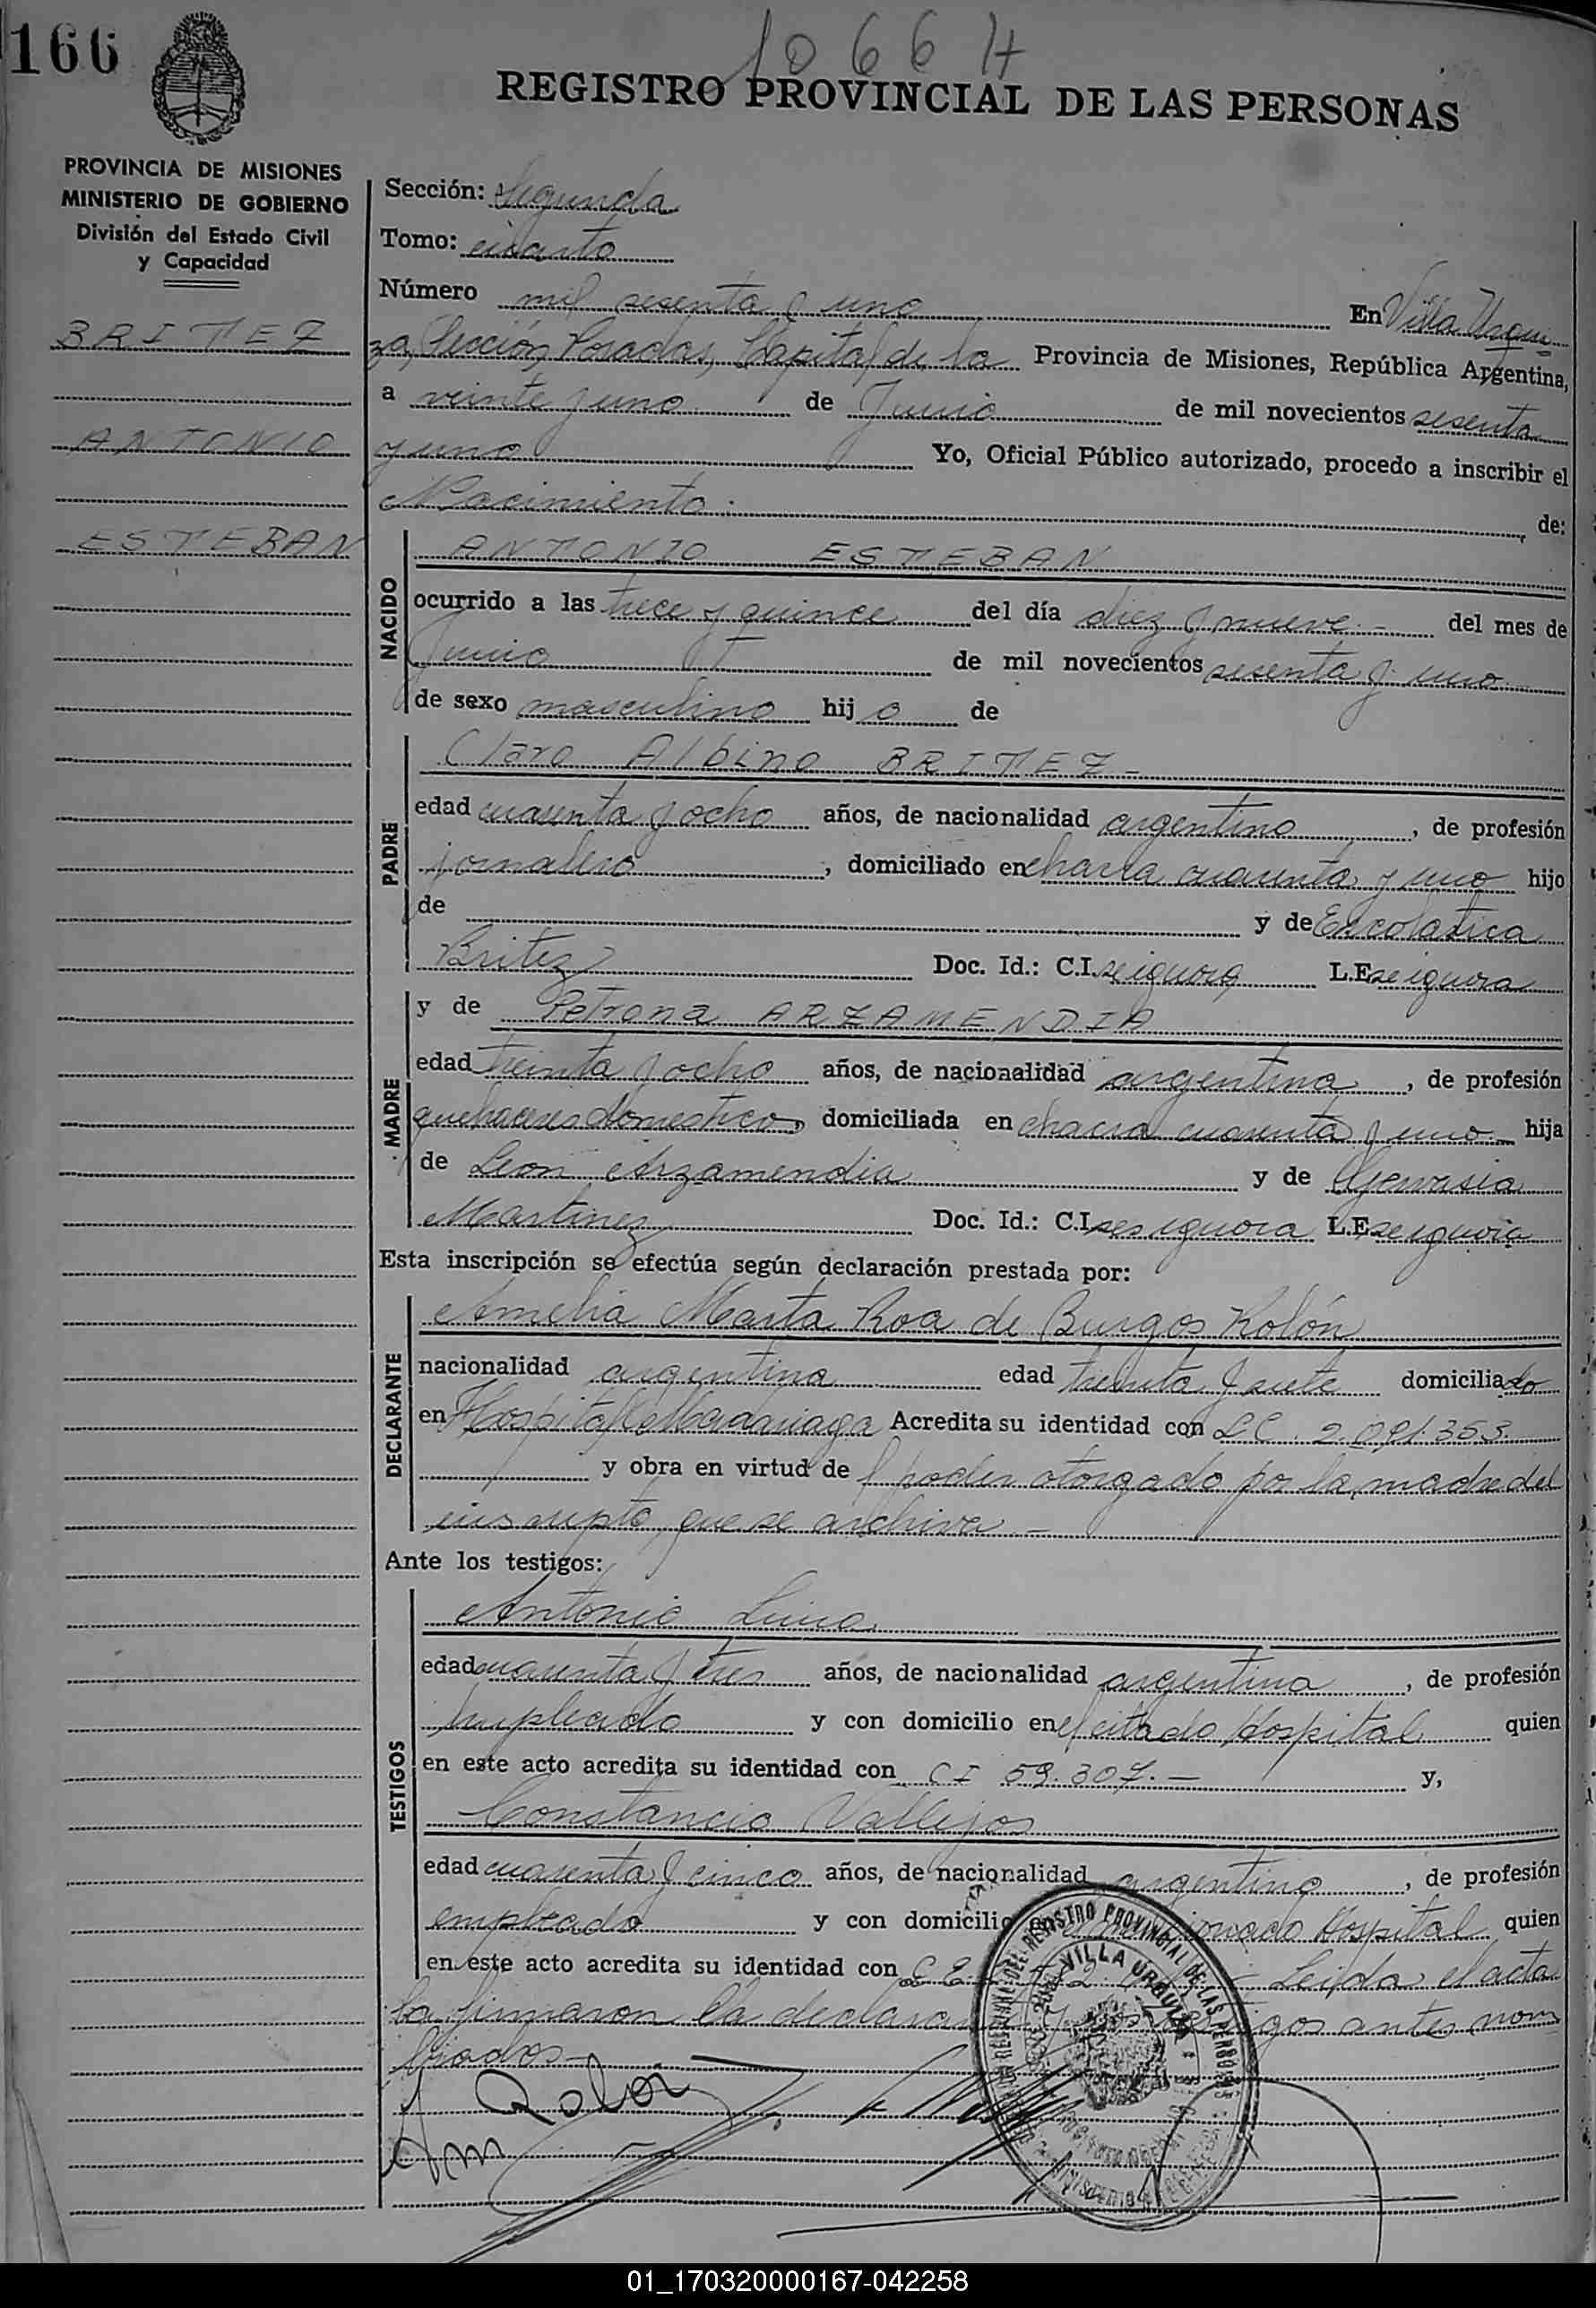 166
10664
REGISTRO PROVINCIAL DE LAS PERSONAS
PROVINCIA DE MISIONES
MINISTERIO DE GOBIERNO
División del Estado Civil
y Capacidad
BRITEZ
ANTONIO
ESTEBAN
Sección: Segunda
Tomo: cuarto
Número mil sesenta y uno En Villa Urqui-
za, Sección Posadas, Capital de la Provincia de Misiones, República Argentina,
a veinte y uno de Junio de mil novecientos sesenta
y uno Yo, Oficial Público autorizado, procedo a inscribir el
Nacimiento de:
NACIDO
ANTONIO ESTEBAN
ocurrido a las trece y quince del día diez y nueve - del mes de
Junio de mil novecientos sesenta y uno
de sexo masculino hij o de
PADRE
Claro Albino BRITEZ -
edad cuarenta y ocho años, de nacionalidad argentino, de profesión
jornalero, domiciliado en chacra cuarenta y uno hijo
de y de Escolastica
Britez Doc. Id.: C.I. se ignora L.E. se ignora
MADRE
y de Petrona ARZAMENDIA
edad treinta y ocho años, de nacionalidad argentina, de profesión
quehaceres domesticos, domiciliada en chacra cuarenta y uno hija
de Leon Arzamendia y de Gervasia
Martinez Doc. Id.: C.I. se ignora L.E. se ignora
Esta inscripción se efectúa según declaración prestada por:
DECLARANTE
Amelia Marta Roa de Burgos Kolón
nacionalidad argentina edad treinta y siete domiciliado
en Hospital Madariaga Acredita su identidad con LC. 2.091.353
y obra en virtud de poder otorgado por la madre del
inscripto que se archiva -
Ante los testigos:
TESTIGOS
Antonio
edad cuarenta y tres años, de nacionalidad argentina, de profesión
empleado y con domicilio en el citado Hospital quien
en este acto acredita su identidad con CI 59.307.- y,
Constancio Vallejos
edad cuarenta y cinco años, de nacionalidad argentino, de profesión
empleado y con domicilio Hospital quien
en este acto acredita su identidad con Leida el acta
la firmaron la declarante y los testigos antes nom
brados -
VILLA URQUIZA
01_170320000167-042258